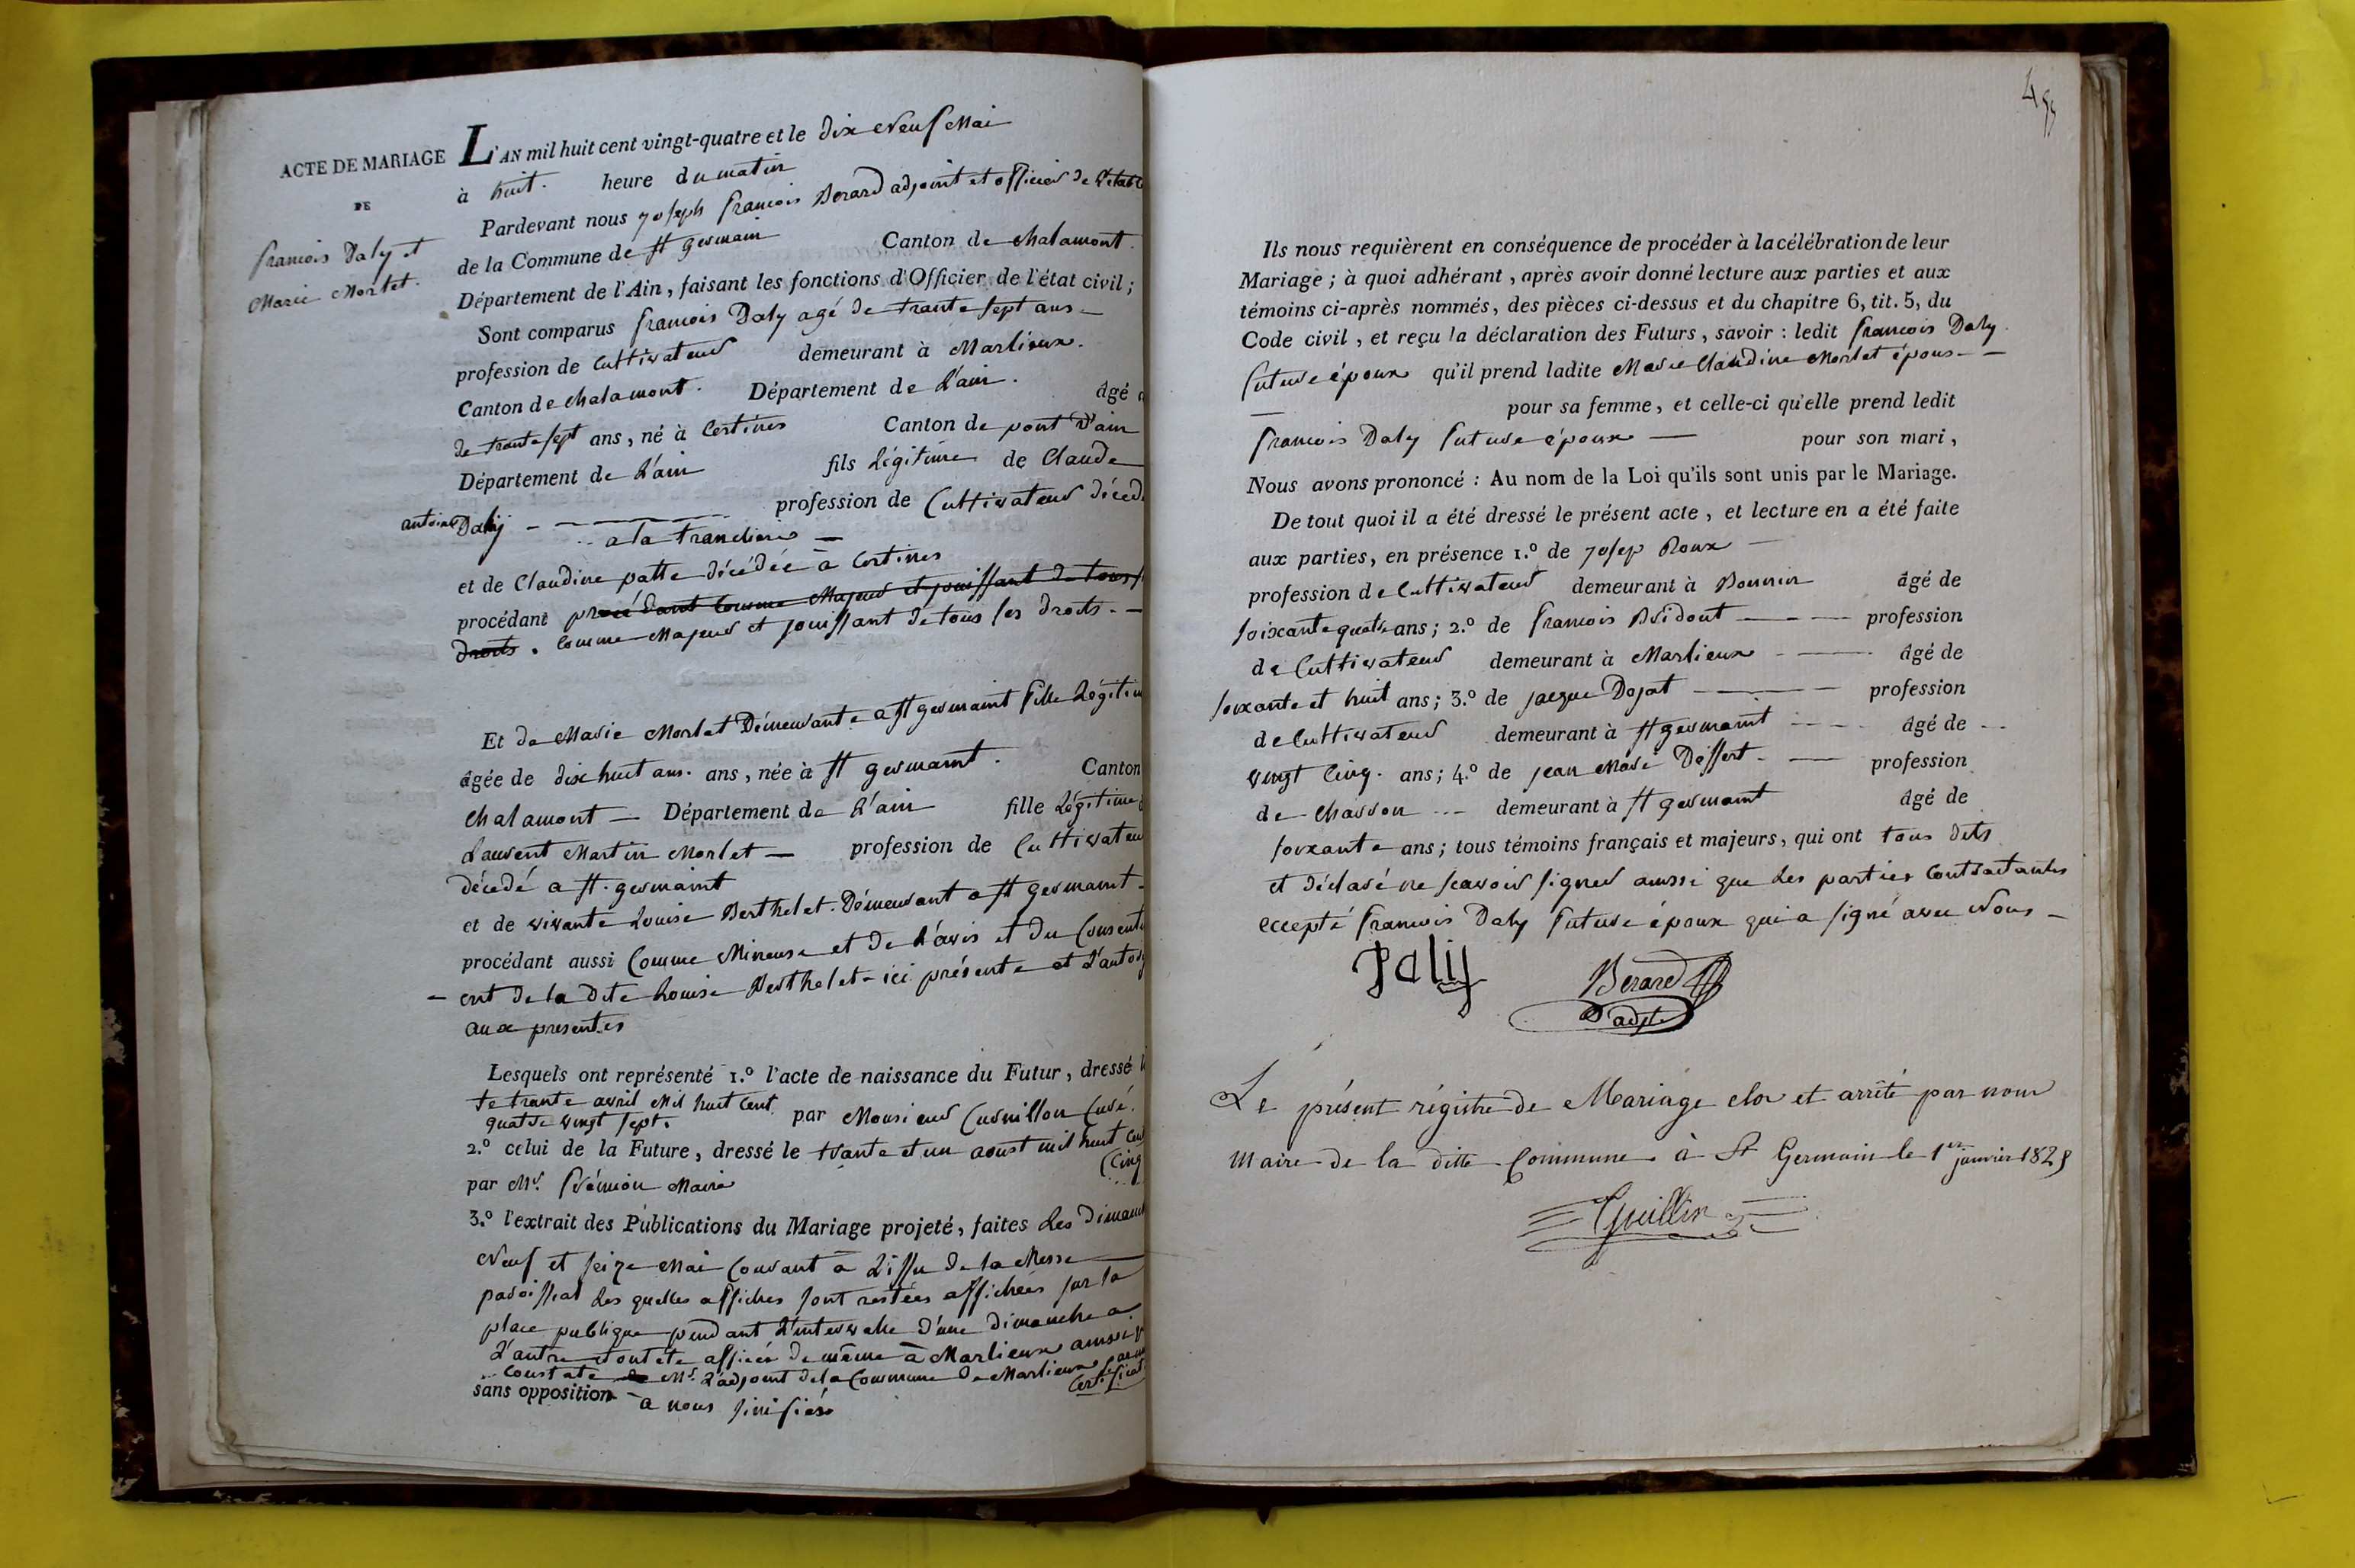 ACTE DE MARIAGE
DE
francois Daly et
Marie Morlet.
L'AN mil huit cent vingt-quatre et le dix Neuf Mai
à huit. heure du matin
Pardevant nous joseph francois Berard adjoint et officier de
de la Commune de st germain Canton de chalamont.
Département de l'Ain, faisant les fonctions d'Officier de l'état civil;
Sont comparus francois Daly agé de trante sept ans
profession de Cultivateur demeurant à Marlieux.
Canton de chalamont. Département de L'ain. âgé
de trante sept ans, né à Certines Canton de pont d'ain
Département de L'ain fils Légitime de Claude
antoine Daly profession de Cultivateur décédé
a la trancliere
et de Claudine patte décédée à Certines
procédant procédant comme Majeur et jouissant de tous
droits. Comme Majeur et jouissant de tous ses droits.
Et de Marie Morlet Démeurante a st germaint fille Légitime
âgée de dix huit ans. ans, née à st germaint. Canton
chalamont Département de L'ain fille Légitime
Laurent Martin Morlet profession de Cultivateur
décedé a st. germaint
et de vivante Louise Berthelet. Démeurant a st germaint
procédant aussi Comme Mineuse et de L'avis et du Consente
ent de la dite Louise Berthelet ici présente et L'autori
aux presentes
Lesquels ont représenté 1.º l'acte de naissance du Futur, dressé
te trante avril Mil huit Cent
quatre vingt sept. par Monsieur Curnillon Curé.
2.º celui de la Future, dressé le trante et un aoust mil huit cent
Cinq
par Mr. frémion Maire
3.º l'extrait des Publications du Mariage projeté, faites Les dimanch
Neuf et seize Mai Courant à L'issu de la Messe
paroissial Les quelles affiches sont restées affichées sur la
place publique pendant L'intervalle d'une dimanche a
L'autre et ont ete affiées de même à Marlieux ainsi
Constate Mr. L'adjoint de la Commune de Marlieux
Certificat
sans opposition à nous sinifiés
Ils nous requièrent en conséquence de procéder à la célébration de leur
Mariage; à quoi adhérant, après avoir donné lecture aux parties et aux
témoins ci-après nommés, des pièces ci-dessus et du chapitre 6, tit. 5, du
Code civil, et reçu la déclaration des Futurs, savoir: ledit francois Daly
future époux qu'il prend ladite Marie Claudine Morlet épous
pour sa femme, et celle-ci qu'elle prend ledit
francois Daly future époux pour son mari,
Nous avons prononcé: Au nom de la Loi qu'ils sont unis par le Mariage.
De tout quoi il a été dressé le présent acte, et lecture en a été faite
aux parties, en présence 1.º de josep Roux
profession de Cultivateur demeurant à âgé de
soixante quatre ans; 2.º de francois Bridont profession
de Cultivateur demeurant à Marlieux âgé de
soixante et huit ans; 3.º de jacque Dojat profession
de Cultivateur demeurant à st germaint âgé de
vingt Cinq. ans; 4.º de jean Marie Deffert profession
de Charron demeurant à st germaint âgé de
soixante ans; tous témoins français et majeurs, qui ont tous dits
et déclaré ne scavoir signer aussi que Les parties Contractantes
eccepté francois Daly future époux qui a signé avec Nous
Daliy
Berard
adjt
Le présent régistre de Mariage clos et arrêté par nous
Maire de la ditte Commune à St Germain le 1er janvier 1825
Guillin